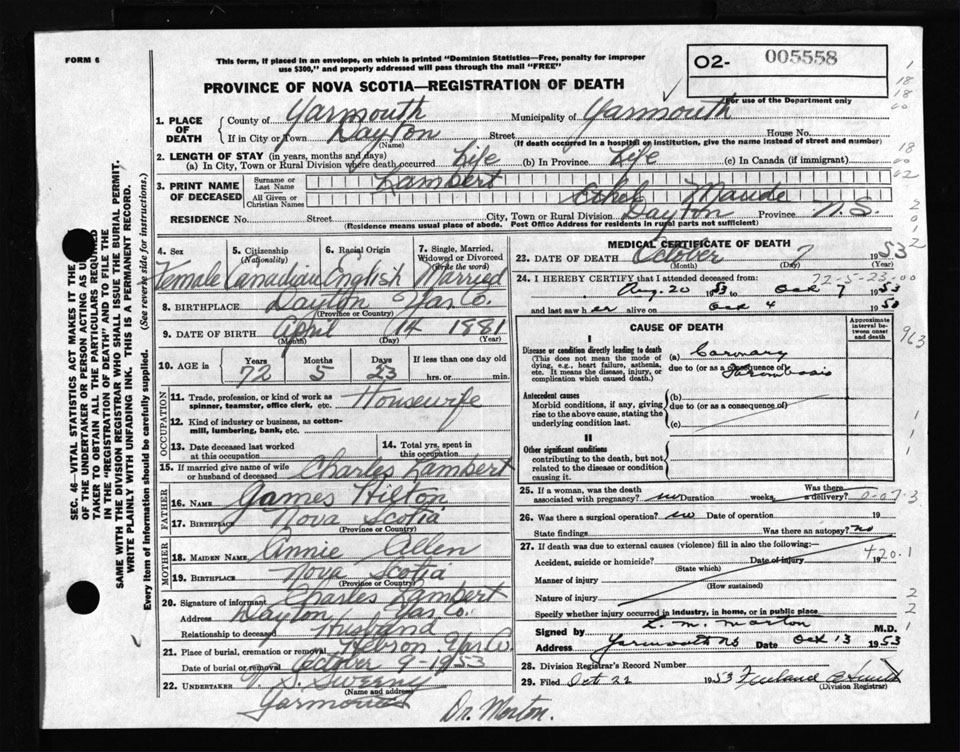 FORM 6
This form, if placed in an envelope, on which is printed "Dominion Statistics—Free, penalty for improper
use $300," and properly addressed will pass through the mail "FREE"
O2- 005558
For use of the Department only
PROVINCE OF NOVA SCOTIA—REGISTRATION OF DEATH
1. PLACE OF DEATH
County of Yarmouth Municipality of Yarmouth
If in City or Town Dayton Street House No.
(Name) (If death occurred in a hospital or institution, give the name instead of street and number)
2. LENGTH OF STAY (in years, months and days)
(a) In City, Town or Rural Division where death occurred Life (b) In Province Life (c) In Canada (if immigrant)
3. PRINT NAME OF DECEASED
Surname or Last Name Lambert
All Given or Christian Names Ethel Maude
RESIDENCE No. Street City, Town or Rural Division Dayton Province N.S.
(Residence means usual place of abode. Post Office Address for residents in rural parts not sufficient)
4. Sex Female
5. Citizenship (Nationality) Canadian
6. Racial Origin English
7. Single, Married, Widowed or Divorced (write the word) Married
8. BIRTHPLACE Dayton Yar Co.
(Province or Country)
9. DATE OF BIRTH April 14 1881
(Month) (Day) (Year)
10. AGE in Years 72 Months 5 Days 23 If less than one day old hrs. or min.
OCCUPATION
11. Trade, profession, or kind of work as spinner, teamster, office clerk, etc. Housewife
12. Kind of industry or business, as cotton-mill, lumbering, bank, etc.
13. Date deceased last worked at this occupation
14. Total yrs. spent in this occupation
15. If married give name of wife or husband of deceased Charles Lambert
FATHER
16. NAME James Hilton
17. BIRTHPLACE Nova Scotia
(Province or Country)
MOTHER
18. MAIDEN NAME Annie Allen
19. BIRTHPLACE Nova Scotia
(Province or Country)
20. Signature of informant Charles Lambert
Address Dayton Yar Co.
Relationship to deceased Husband
21. Place of burial, cremation or removal Hebron Yar Co.
Date of burial or removal October 9-1953
22. UNDERTAKER V. S. Sweeny
(Name and address)
Yarmouth
Dr. Morton.
MEDICAL CERTIFICATE OF DEATH
23. DATE OF DEATH October 7 1953
(Month) (Day)
24. I HEREBY CERTIFY that I attended deceased from: 72-5-23-00
Aug. 20 1953 Oct 7 1953
and last saw her alive on Oct 4 19
CAUSE OF DEATH
Approximate interval between onset and death
I
Disease or condition directly leading to death
(This does not mean the mode of dying, e.g., heart failure, asthenia, etc. It means the disease, injury, or complication which caused death.)
(a) Coronary
due to (or as a consequence of)
Thrombosis
Antecedent causes
Morbid conditions, if any, giving rise to the above cause, stating the underlying condition last.
(b)
due to (or as a consequence of)
(c)
II
Other significant conditions
contributing to the death, but not related to the disease or condition causing it.
25. If a woman, was the death associated with pregnancy? no Duration weeks, Was there a delivery?
26. Was there a surgical operation? no Date of operation 19
State findings Was there an autopsy? no
27. If death was due to external causes (violence) fill in also the following:—
Accident, suicide or homicide? Date of injury 19
420.1
(State which)
Manner of injury
(How sustained)
Nature of injury
Specify whether injury occurred in industry, in home, or in public place
Signed by L. M. Morton M.D.
Address Yarmouth NS Date Oct 13 1953
28. Division Registrar's Record Number
29. Filed Oct 22 1953
(Division Registrar)
SEC. 46—VITAL STATISTICS ACT MAKES IT THE
OF THE UNDERTAKER OR PERSON ACTING AS U
TAKER TO OBTAIN ALL THE PARTICULARS REQUIRED
IN THE "REGISTRATION OF DEATH" AND TO FILE THE
SAME WITH THE DIVISION REGISTRAR WHO SHALL ISSUE THE BURIAL PERMIT.
WRITE PLAINLY WITH UNFADING INK. THIS IS A PERMANENT RECORD.
Every item of information should be carefully supplied. (See reverse side for instructions.)